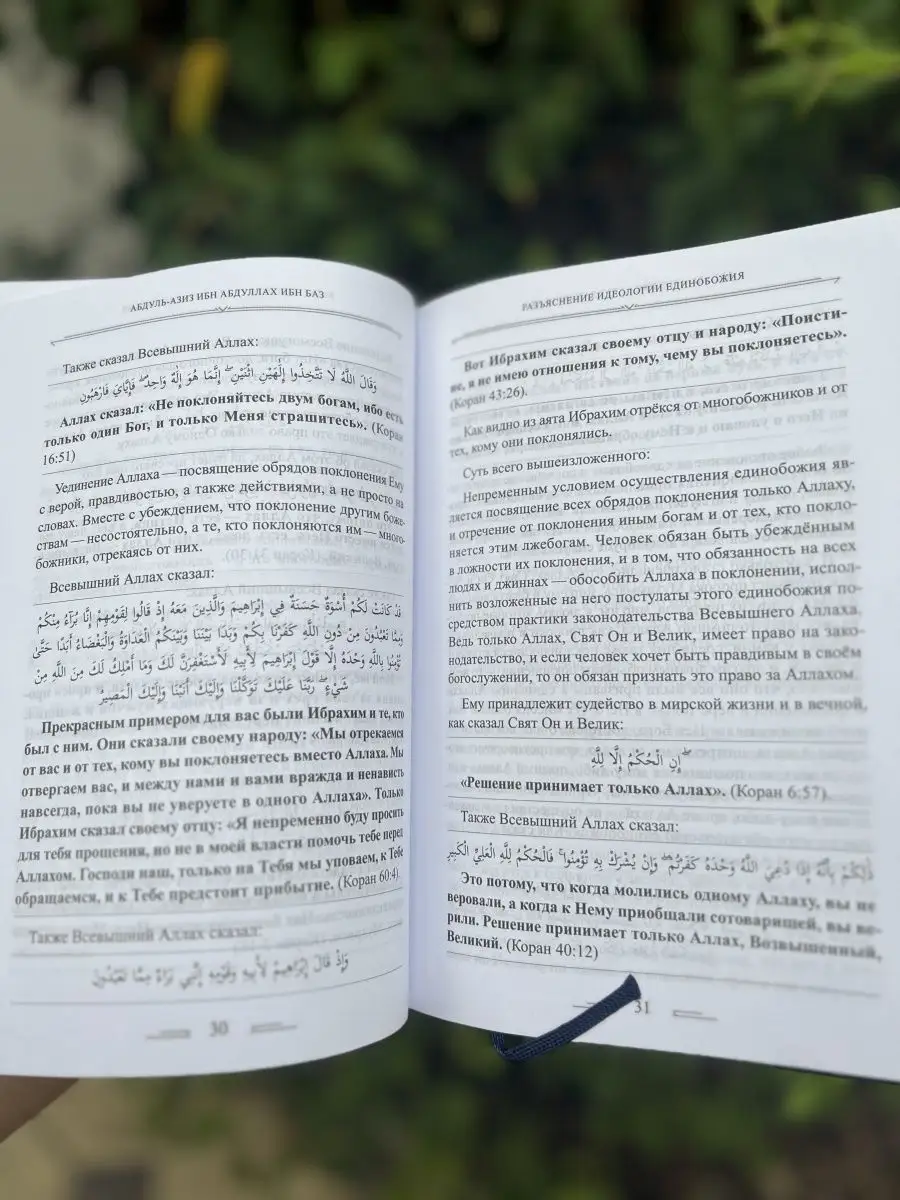 АБДУЛЬ-АЗИЗ ИБН АБДУЛЛАХ ИБН БАЗ
Также сказал Всевышний Аллах:
وَقَالَ اللَّهُ لَا تَتَّخِذُوا إِلَٰهَيْنِ اثْنَيْنِ ۖ إِنَّمَا هُوَ إِلَٰهٌ وَاحِدٌ ۖ فَإِيَّايَ فَارْهَبُونِ
Аллах сказал: «Не поклоняйтесь двум богам, ибо есть
только один Бог, и только Меня страшитесь». (Коран
16:51)
Уединение Аллаха — посвящение обрядов поклонения Ему
с верой, правдивостью, а также действиями, а не просто на
словах. Вместе с убеждением, что поклонение другим боже-
ствам — несостоятельно, а те, кто поклоняются им — много-
божники, отрекаясь от них.
Всевышний Аллах сказал:
قَدْ كَانَتْ لَكُمْ أُسْوَةٌ حَسَنَةٌ فِي إِبْرَاهِيمَ وَالَّذِينَ مَعَهُ إِذْ قَالُوا لِقَوْمِهِمْ إِنَّا بُرَآءُ مِنْكُمْ
وَمِمَّا تَعْبُدُونَ مِنْ دُونِ اللَّهِ كَفَرْنَا بِكُمْ وَبَدَا بَيْنَنَا وَبَيْنَكُمُ الْعَدَاوَةُ وَالْبَغْضَاءُ أَبَدًا حَتَّىٰ
تُؤْمِنُوا بِاللَّهِ وَحْدَهُ إِلَّا قَوْلَ إِبْرَاهِيمَ لِأَبِيهِ لَأَسْتَغْفِرَنَّ لَكَ وَمَا أَمْلِكُ لَكَ مِنَ اللَّهِ مِنْ
شَيْءٍ ۖ رَبَّنَا عَلَيْكَ تَوَكَّلْنَا وَإِلَيْكَ أَنَبْنَا وَإِلَيْكَ الْمَصِيرُ
Прекрасным примером для вас были Ибрахим и те, кто
был с ним. Они сказали своему народу: «Мы отрекаемся
от вас и от тех, кому вы поклоняетесь вместо Аллаха. Мы
отвергаем вас, и между нами и вами вражда и ненависть
навсегда, пока вы не уверуете в одного Аллаха». Только
Ибрахим сказал своему отцу: «Я непременно буду просить
для тебя прощения, но не в моей власти помочь тебе перед
Аллахом. Господи наш, только на Тебя мы уповаем, к Тебе
обращаемся, и к Тебе предстоит прибытие. (Коран 60:4)
Также Всевышний Аллах сказал:
وَإِذْ قَالَ إِبْرَاهِيمُ لِأَبِيهِ وَقَوْمِهِ إِنَّنِي بَرَاءٌ مِمَّا تَعْبُدُونَ
30
РАЗЪЯСНЕНИЕ ИДЕОЛОГИИ ЕДИНОБОЖИЯ
Вот Ибрахим сказал своему отцу и народу: «Поисти-
не, я не имею отношения к тому, чему вы поклоняетесь».
(Коран 43:26).
Как видно из аята Ибрахим отрёкся от многобожников и от
тех, кому они поклонялись.
Суть всего вышеизложенного:
Непременным условием осуществления единобожия яв-
ляется посвящение всех обрядов поклонения только Аллаху,
и отречение от поклонения иным богам и от тех, кто покло-
няется этим лжебогам. Человек обязан быть убеждённым
в ложности их поклонения, и в том, что обязанность на всех
людях и джиннах — обособить Аллаха в поклонении, испол-
нить возложенные на него постулаты этого единобожия по-
средством практики законодательства Всевышнего Аллаха.
Ведь только Аллах, Свят Он и Велик, имеет право на зако-
нодательство, и если человек хочет быть правдивым в своём
богослужении, то он обязан признать это право за Аллахом.
Ему принадлежит судейство в мирской жизни и в вечной,
как сказал Свят Он и Велик:
إِنِ الْحُكْمُ إِلَّا لِلَّهِ ۖ
«Решение принимает только Аллах». (Коран 6:57)
Также Всевышний Аллах сказал:
ذَٰلِكُمْ بِأَنَّهُ إِذَا دُعِيَ اللَّهُ وَحْدَهُ كَفَرْتُمْ ۖ وَإِنْ يُشْرَكْ بِهِ تُؤْمِنُوا ۚ فَالْحُكْمُ لِلَّهِ الْعَلِيِّ الْكَبِيرِ
Это потому, что когда молились одному Аллаху, вы не
веровали, а когда к Нему приобщали сотоварищей, вы ве-
рили. Решение принимает только Аллах, Возвышенный,
Великий. (Коран 40:12)
31